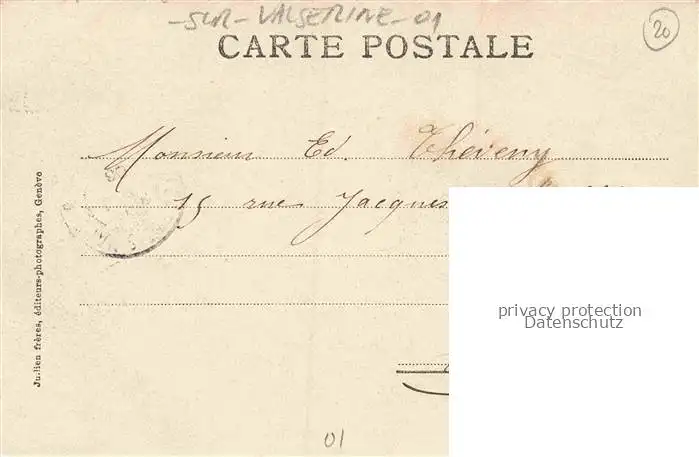 -SUR-VALSERINE-01
20
CARTE POSTALE
Monsieur Ed. Théveny
15 rue Jacques
privacy protection
Datenschutz
Jullien frères, éditeurs-photographes, Genève
01